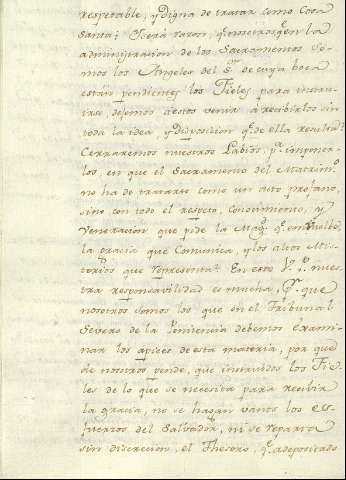 respetable, y digna de tratar como Cosa
Santa; Será razon, q.e nosotros q.e en la
administracion de los Sacramentos so-
mos los Angeles del S.or de cuya boca
están pendientes los Fieles para instru-
irse dejemos a estos venir á recibirlos sin
toda la idea, y disposicion q.e de ella
Cerraremos nuestros Labios, p.a imponer-
los, en que el Sacramento del Matrim.o
no ha de tratarse como un acto profano,
sino con todo el respeto, conocimiento, y
veneracion que pide la Mag.d q.e embuelbe,
la gracia que comunica, y los altos Mis-
terios que representa? En esto nues-
tra responsavilidad es mucha, P.r que
nosotros somos los que en el Tribunal
Severo de la Penitencia debemos exami-
nar los apices de esta materia, por que
de nosotros pende, que instruidos los Fie-
les de lo que se necesita para recivir
la gracia, no se hagan vanos los es-
fuerzos del Salvador, ni se reparta
sin discrecion, el Thesoro, q.e a depositado